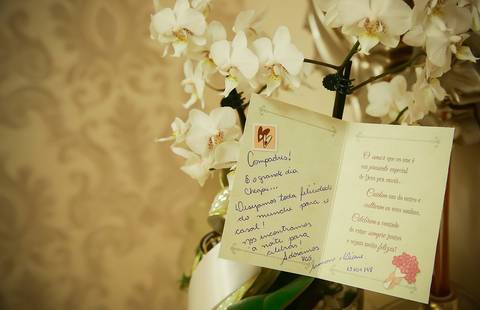 Compadres!
E o grande dia
chegou...
Desejamos toda felicidade
do mundo para o
casal!
nos encontramos
a noite para
celebrar!
Adoramos
vcs
O amor que os une é
um presente especial
de Deus para vocês.
Cuidem um do outro e
cultivem os seus sonhos.
Celebrem a vontade
de estar sempre juntos
e sejam muito felizes!